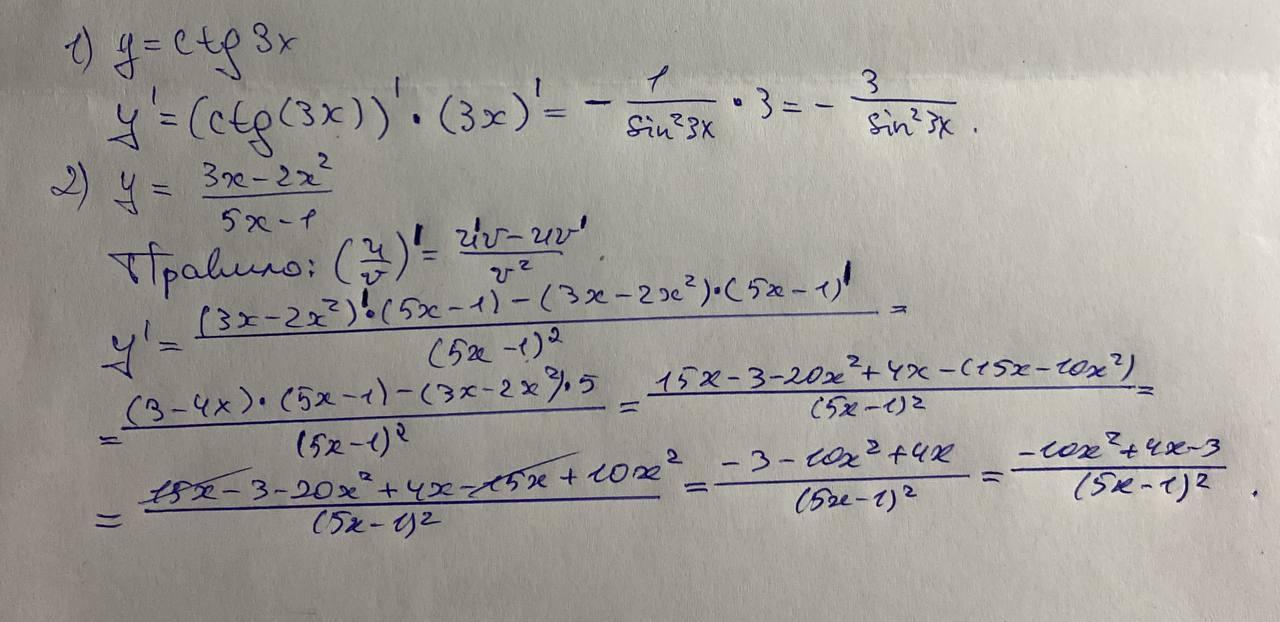 1) y = ctg 3x
y' = (ctg(3x))' · (3x)' = - 1/sin²3x · 3 = - 3/sin²3x.
2) y = (3x - 2x²)/(5x - 1)
Правило: (u/v)' = (u'v - uv')/v².
y' = ((3x - 2x²)' · (5x - 1) - (3x - 2x²) · (5x - 1)')/(5x - 1)² =
= ((3 - 4x) · (5x - 1) - (3x - 2x²) · 5)/(5x - 1)² = (15x - 3 - 20x² + 4x - (15x - 10x²))/(5x - 1)² =
= (15x - 3 - 20x² + 4x - 15x + 10x²)/(5x - 1)² = (-3 - 10x² + 4x)/(5x - 1)² = (-10x² + 4x - 3)/(5x - 1)².